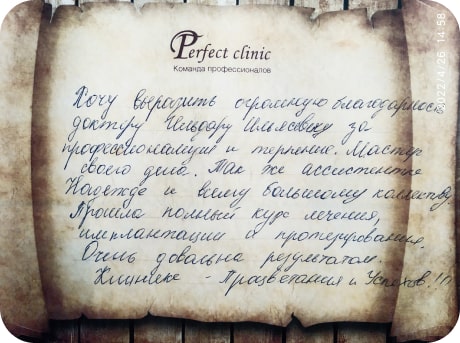 Perfect clinic
Команда профессионалов
Хочу выразить огромную благодарность
доктору Ильдару Ильясовичу за
профессионализм и терпение. Мастер
своего дела. Так же ассистентке
Надежде и всему большому коллективу.
Прошла полный курс лечения,
имплантации и протезирования.
Очень довольна результатом.
Клинике - Процветания и Успехов!!!
2022/4/26 14:58